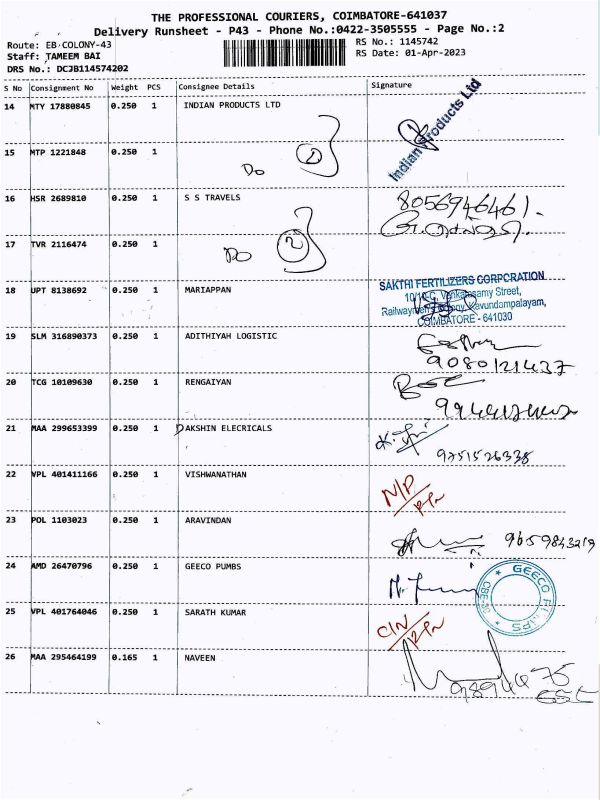 THE PROFESSIONAL COURIERS, COIMBATORE-641037
Delivery Runsheet - P43 - Phone No.:0422-3505555 - Page No.:2
Route: EB COLONY-43
RS No.: 1145742
Staff: TAMEEM BAI
RS Date: 01-Apr-2023
DRS No.: DCJB114574202
S No Consignment No Weight PCS Consignee Details Signature
14 MTY 17880845 0.250 1 INDIAN PRODUCTS LTD
Indian Products Ltd
15 MTP 1221848 0.250 1
Do 2
16 HSR 2689810 0.250 1 S S TRAVELS 8056946461.
17 TVR 2116474 0.250 1
Do 2
18 UPT 8138692 0.250 1 MARIAPPAN
SAKTHI FERTILIZERS CORPORATION
10/10-C, Venkatasamy Street,
Railwaymen's Colony, Kavundampalayam,
COIMBATORE - 641030
19 SLM 316890373 0.250 1 ADITHIYAH LOGISTIC
9080121437
20 TCG 10109630 0.250 1 RENGAIYAN
21 MAA 299653399 0.250 1 DAKSHIN ELECRICALS
9751526335
22 VPL 401411166 0.250 1 VISHWANATHAN N/P
23 POL 1103023 0.250 1 ARAVINDAN 9659843219
24 AMD 26470796 0.250 1 GEECO PUMBS
GEECO PUMPS
25 VPL 401764046 0.250 1 SARATH KUMAR C/N
26 MAA 295464199 0.165 1 NAVEEN